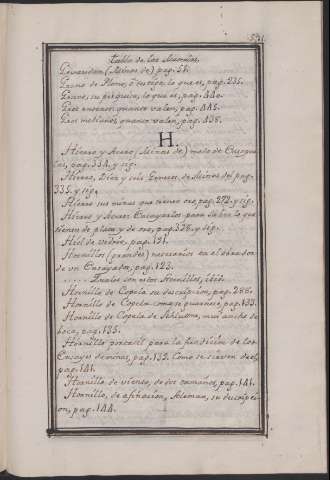 Tabla de las Materias.
(Minas de) pag. 51.
de Plomo, ò lo que es, pag. 235.
lo que es, pag. 440.
quanto valen, pag. 445.
quanto valen, pag. 438.
H.
Hierro y Acero, (Minas de) modo de
pag. 334. y sig.
Hierro, Diez y seis Generos de Minas del pag.
335. y sig.
Hierro sus minas que tienen oro, pag. 272. y sig.
Hierro y Acero, Ensayarlos para saber lo que
tienen de plata y de oro, pag. 338. y sig.
Hiel de vidrio, pag. 121.
Hornillos (grandes) necesarios en el obrador
de un Ensayador, pag. 123.
Quales son estos Hornillos, ibid.
Hornillo de Copela su descripcion, pag. 286.
Hornillo de Copela como se guarnece, pag. 133.
Hornillo de Copela de Schlutter, mui ancho de
boca, pag. 135.
Hornillo portatil para la fundicion de los
Ensayes de minas, pag. 139. Como se sirven de el,
pag. 141.
Hornillo de viento, de dos tamaños, pag. 141.
Hornillo, de afinacion, Aleman, su descripci-
on, pag. 144.